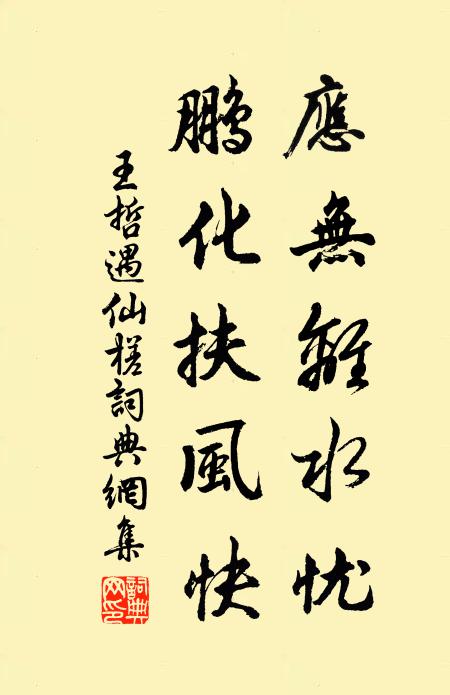 應無離水忧
鵬化扶風快
王哲遇仙槎詞典網集
詞典网印